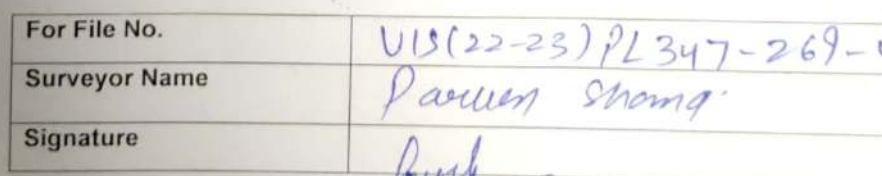 For File No. VIS(22-23)PL347-269-
Surveyor Name Parveen Sharma
Signature